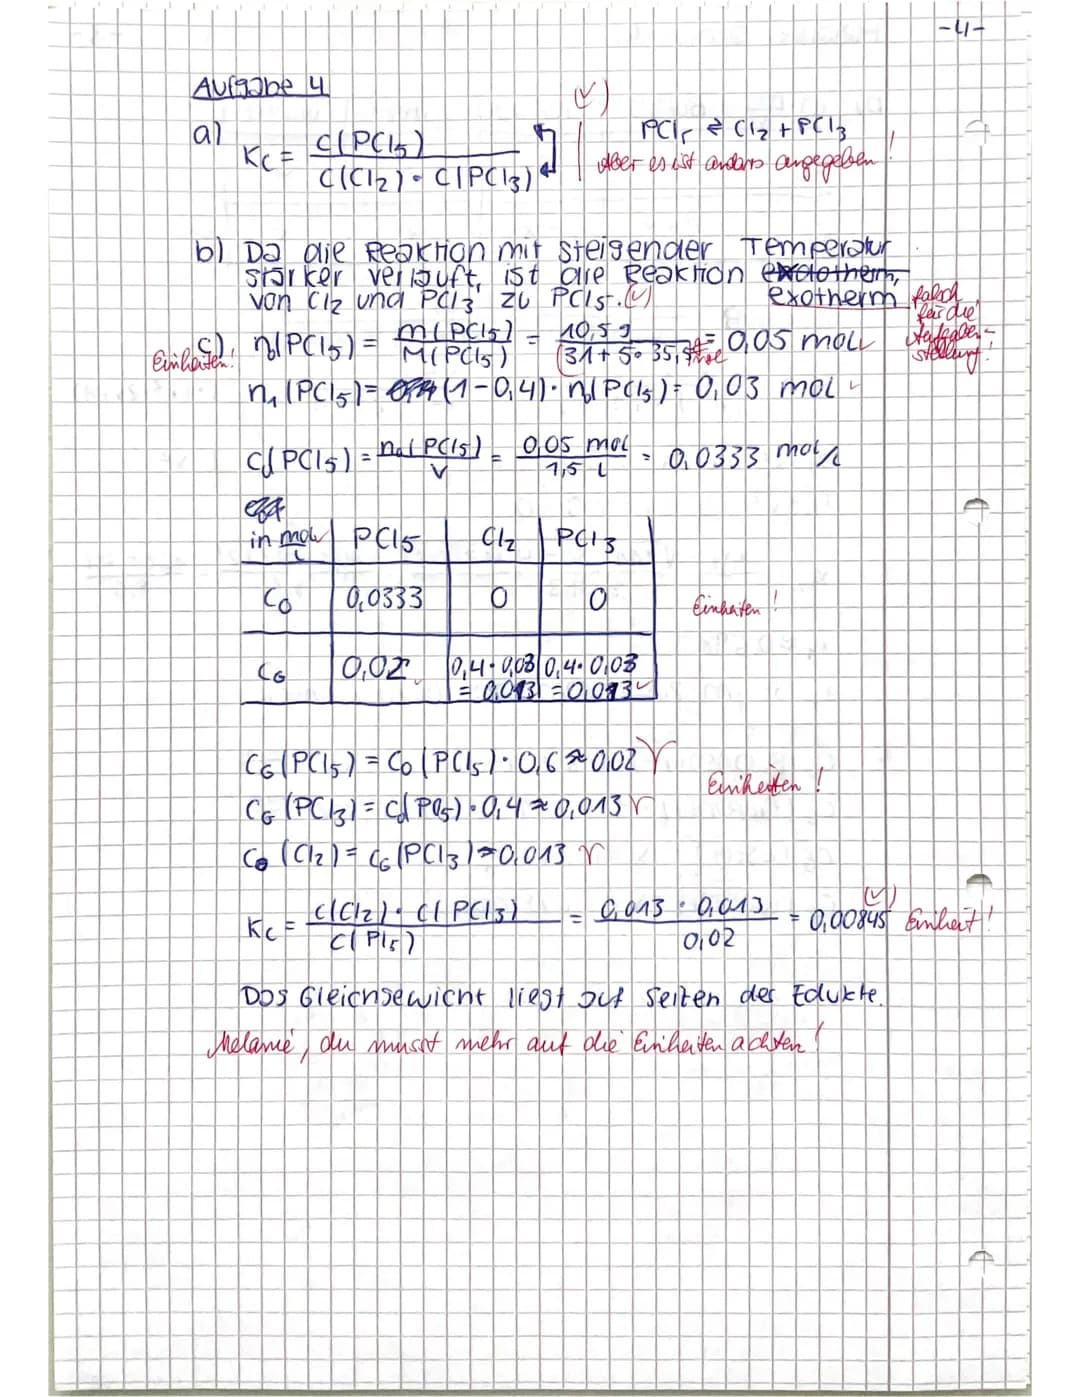 -4-
Aufgabe 4
a) Kc = c(PCl5) / c(Cl2) · c(PCl3)
(✓)
PCl5 ⇌ Cl2 + PCl3
Aber es ist anders angegeben!
b) Da die Reaktion mit steigender Temperatur
stärker verläuft, ist die Reaktion exdotherm,
von Cl2 und PCl3 zu PCl5. (✓) exotherm
falsch
für die
Aufgaben-
stellung!
Einheiten!
c) n0(PCl5) = m(PCl5) / M(PCl5) = 10,5 g / (31 + 5 · 35,5) = 0,05 mol
n1(PCl5) = (1-0,4) · n0(PCl5) = 0,03 mol ✓
c0(PCl5) = n0(PCl5) / V = 0,05 mol / 1,5 L = 0,0333 mol/L
in mol/L PCl5 Cl2 PCl3
C0 0,0333 0 0
Einheiten!
CG 0,02 0,4·0,03 0,4·0,03
= 0,013 = 0,013 ✓
CG(PCl5) = C0(PCl5) · 0,6 ≈ 0,02 ✓
Einheiten!
CG(PCl3) = C0(PCl5) · 0,4 ≈ 0,013 ✓
CG(Cl2) = CG(PCl3) ≈ 0,013 ✓
Kc = c(Cl2) · c(PCl3) / c(Pl5) = 0,013 · 0,013 / 0,02 = 0,00845 (✓) Einheit!
Das Gleichgewicht liegt auf Seiten der Edukte.
Melanie, du musst mehr auf die Einheiten achten!